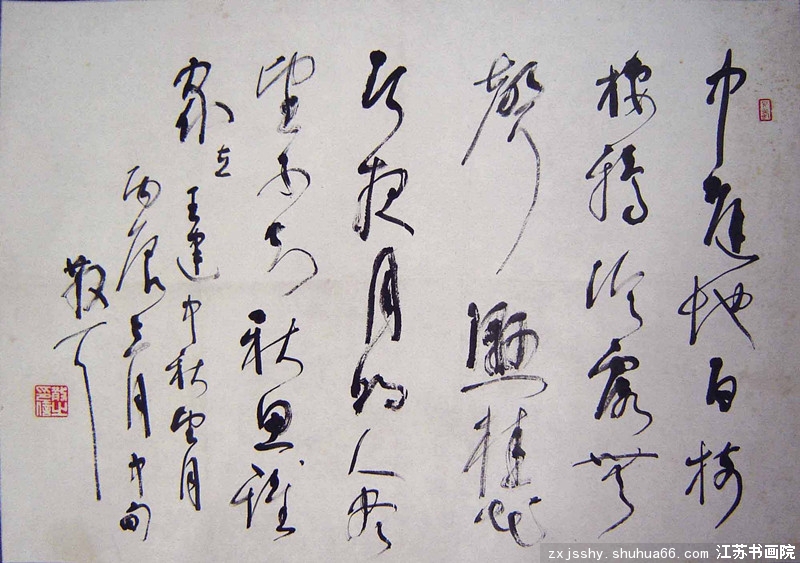 中庭地白樹
棲鴉冷露無
聲濕桂花
今夜月明人盡
望不知秋思誰
家 在 王建中秋望月
丙辰三月中旬
散之
zxjsshy.shuhua66.com 江苏书画院